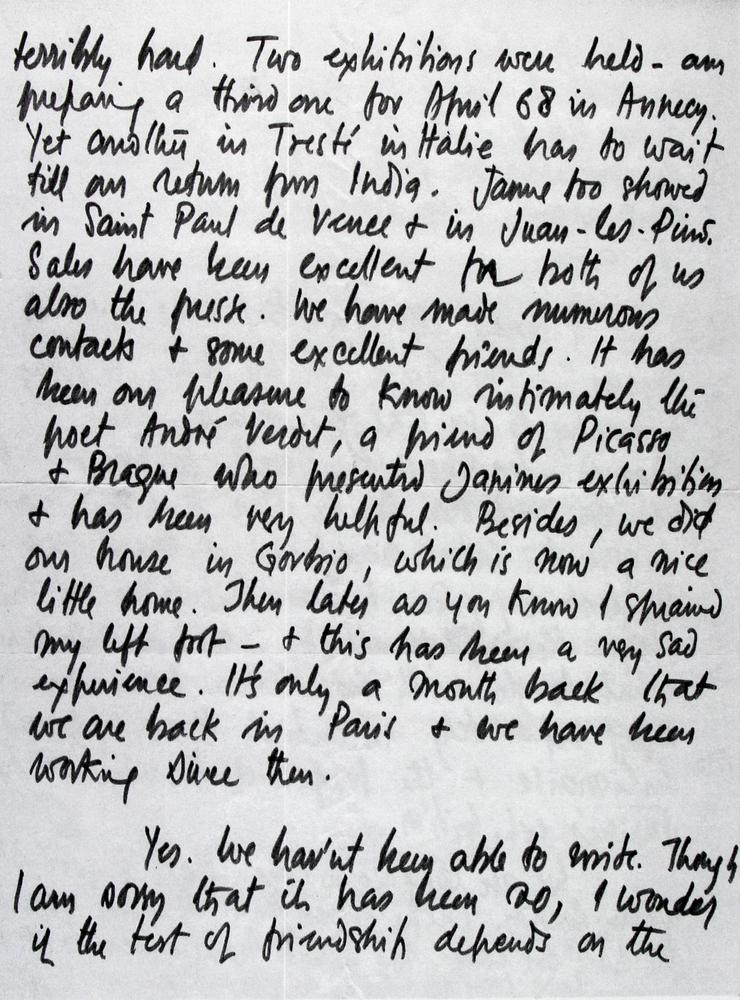 terribly hard. Two exhibitions were held - am
preparing a third one for April 68 in Annecy.
Yet another in Tresté in Italie has to wait
till our return from India. Janine too showed
in Saint Paul de Vence + in Juan-les-Pins.
Sales have been excellent for both of us
also the presse. We have made numerous
contacts + some excellent friends. It has
been our pleasure to know intimately the
poet André Verdet, a friend of Picasso
+ Braque who presented Janines exhibition
+ has been very helpful. Besides, we did
our house in Gorbio, which is now a nice
little home. Then later as you know I sprained
my left foot - + this has been a very sad
experience. It's only a month back that
we are back in Paris + we have been
working since then.
Yes. We hav'nt been able to write. Though
I am sorry that it has been so, I wonder
if the test of friendship depends on the